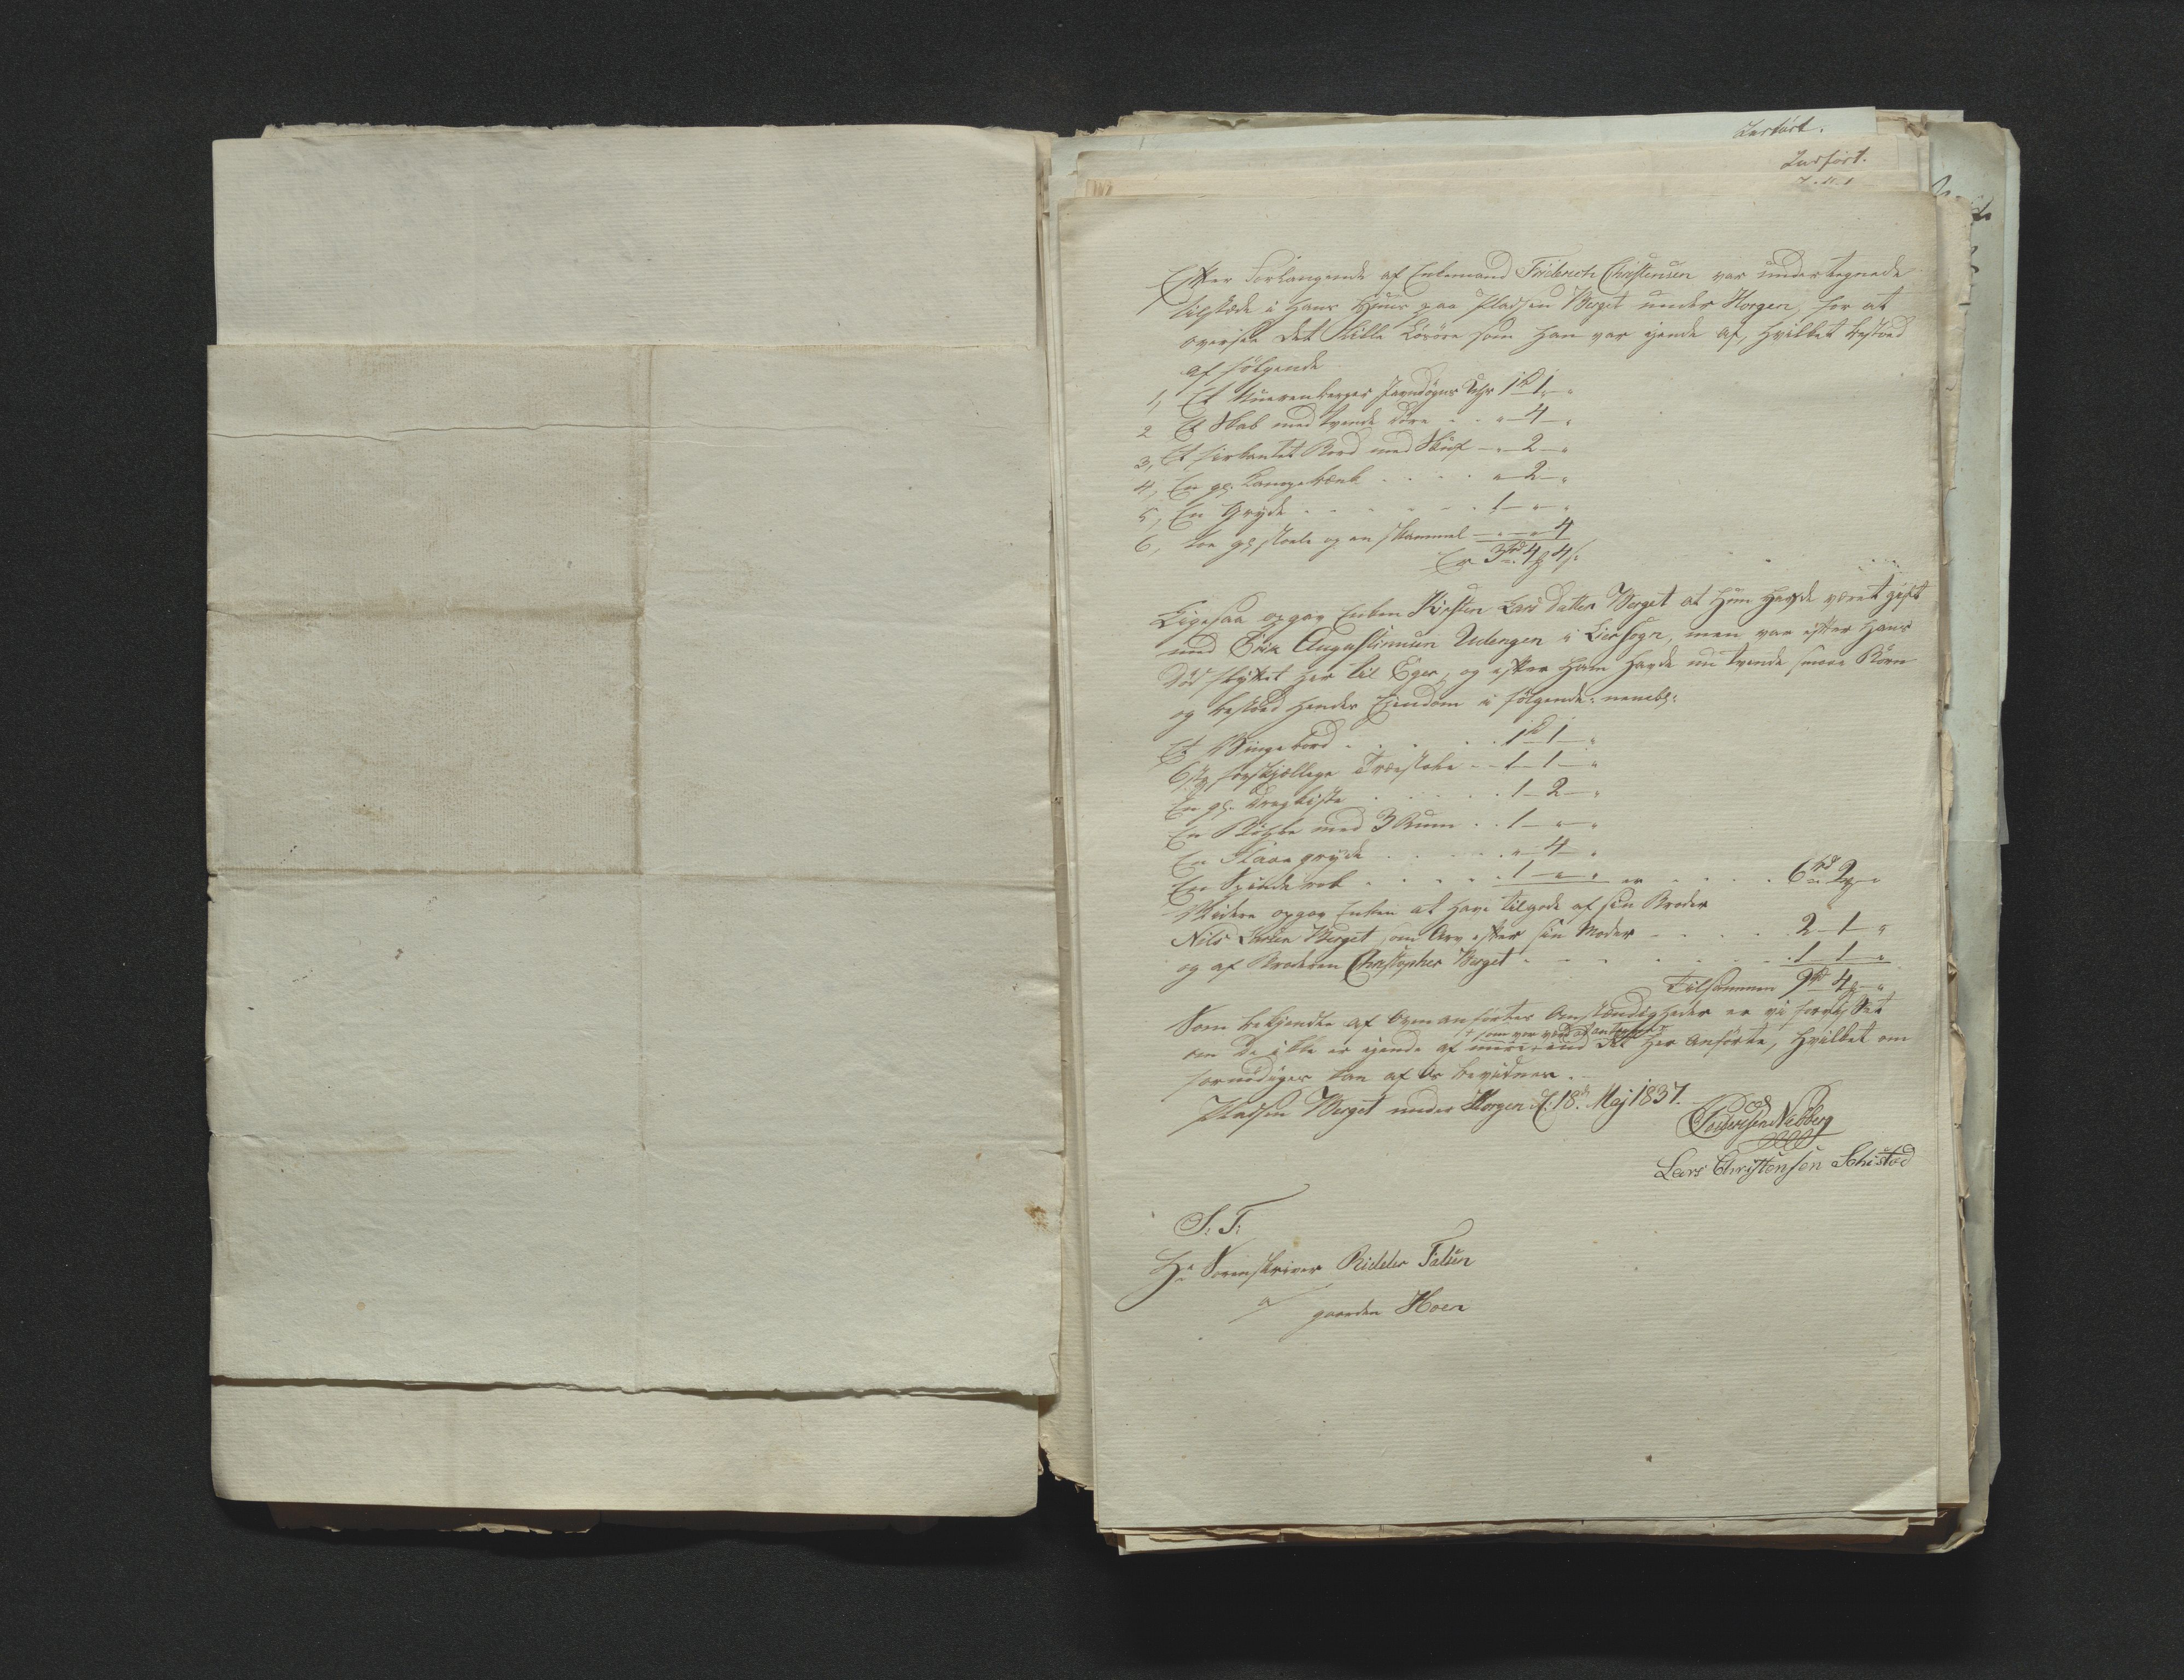 Indført.
Indført.
Efter Forlangende af Enkemand Friderich Christensen var undertegnede
tilstæde i hans Huus paa Pladsen Berget under Horgen, for at
oversee det lille Løsøre som han var ejende af, hvilket bestod
af følgende
1, Et Nürenberger Jevndøgns Uhr 1 Sp 1 - "
2 Et Skab med tvende Døre . . " - 4 - "
3, Et firkantet Bord med Skuf - " - 2 - "
4, En gl. Langebænk . . . . " - 2 - "
5, En Gryde . . . . . . 1 - " - "
6, toe gl stoele og en skammel - " - " - 4
Er 3 Spd 4 # 4 s
Ligesaa opgav Enken Kirsten Lars datter Berget at hun havde været gift
med Erik Augustinusen Udengen i Lier sogn, men var efter hans
Død flyttet her til Eger, og efter ham havde nu tvende smaae Børn
og bestod hendes Ejendom i følgende: nemlig:
Et Vinge bord . . . . . . 1 Sp 1 - "
6 stk forskjællige Træstole . . 1 - 1 - "
En gl. Dragkiste . . . . . 1 - 2 - "
En Bøtte med 3 Rum . . 1 - " - "
En Flaae gryde . . . . . " - 4 - "
En Spinde rok . . . . . 1 - " - " er . . . . . 6 Spd 2 # - "
Videre opgav Enken at have tilgode af sin Broder
Nils Larsen Berget som Arv efter sin Moder - . . . . 2 - 1 - "
og af Broderen Christopher Berget . - . . . . . 1 - 1 - "
Tilsammen 9 Spd 4 # - "
Som bekjendte af ovenanførtes Omstændigheder er vi forvisset
+ som var værd at antegne
om De ikke er ejende af mere + end det her anførte, hvilket om
fornødiges kan af os bevidnes.
Pladsen Berget under Horgen d: 18de Maj 1837.
Nedberg
Lars Christensen Schistad
S: T:
Hr Sorenskriver Ridder Falsen
a/
gaarden Hoen